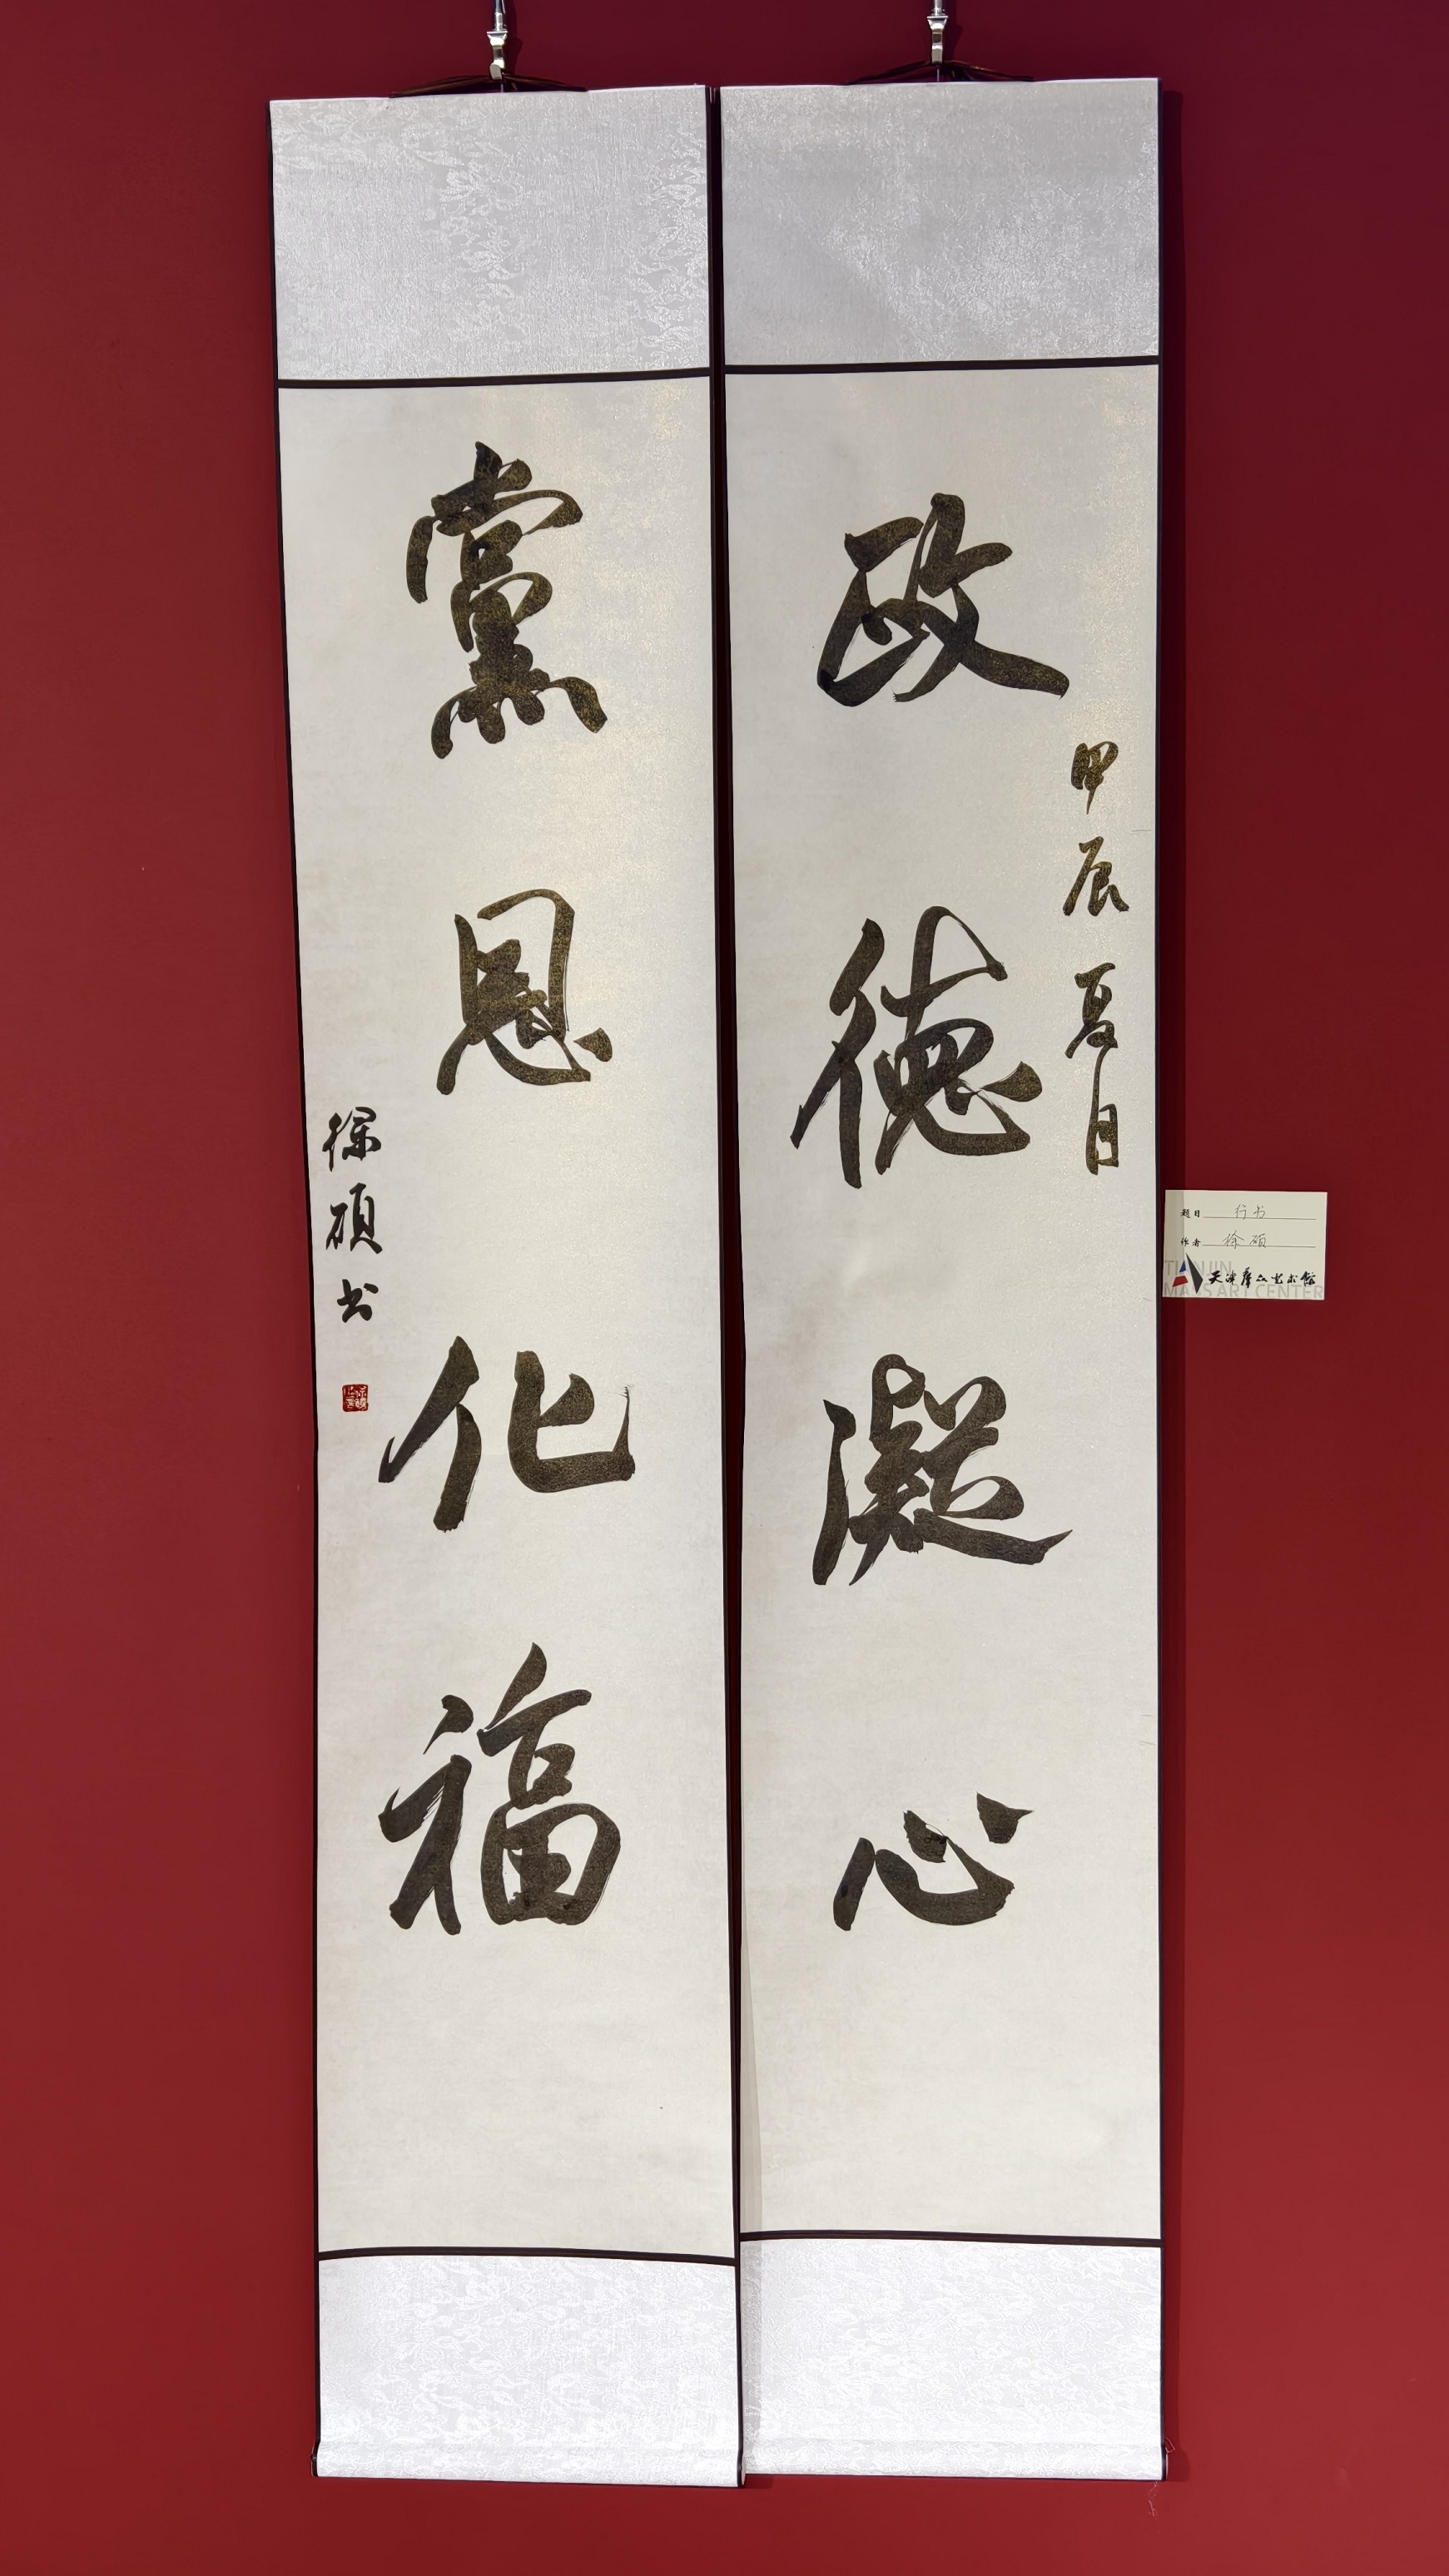 政德凝心
甲辰夏日
黨恩化福
徐碩书
题目 行书
作者 徐硕
天津群众艺术馆
TIANJIN
MASS ART CENTER